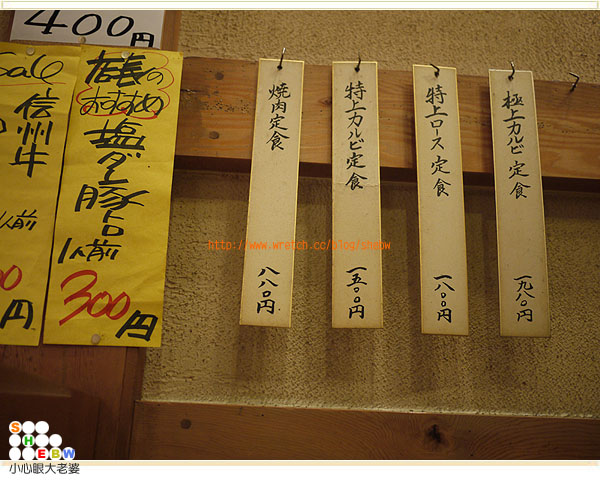 400円
Sale
信州牛
1人前
00
円
店長の
おすすめ
塩ダレ豚トロ
1人前
300円
焼肉定食
八八〇円
特上カルビ定食
一五〇〇円
特上ロース定食
一八〇〇円
極上カルビ定食
一九八〇円
http://www.wretch.cc/blog/shopw
SHEBW
小心眼大老婆